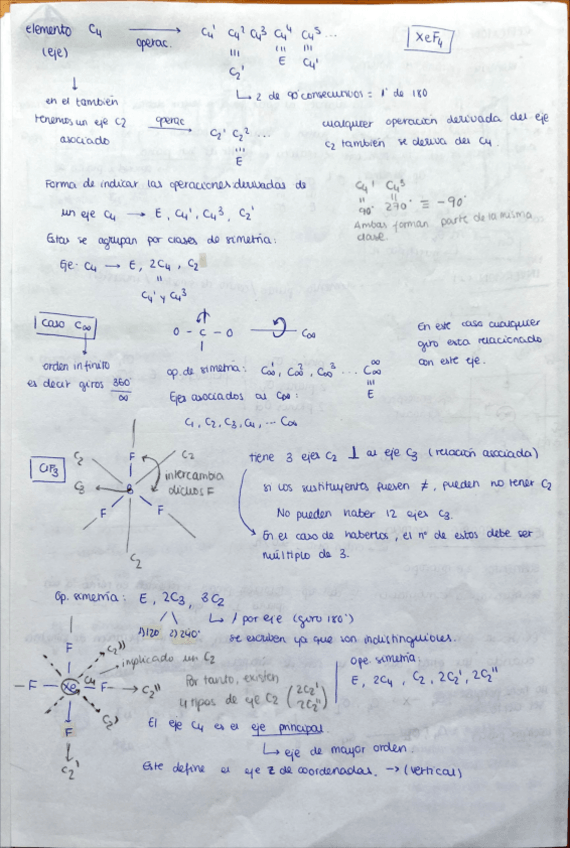 elemento C₄ ⟶ C₄¹ C₄² C₄³ C₄⁴ C₄⁵ ... XeF₄
(eje) operac. ≡ ≡ ≡
C₂¹ E C₄¹
↳ 2 de 90° consecutivos = 1 de 180
en el también
tenemos un eje C₂ operac ⟶ C₂¹ C₂² ...
asociado ≡
E
cualquier operación derivada del eje
C₂ también se deriva del C₄.
Forma de indicar las operaciones derivadas de
un eje C₄ → E, C₄¹, C₄³, C₂¹
C₄¹ C₄³
90° 270° ≡ -90°
Ambas forman parte de la misma
clase.
Estas se agrupan por clases de simetría:
Eje C₄ → E, 2C₄, C₂
C₄¹ y C₄³
caso C∞
orden infinito
es decir giros 360/∞
O - C - O C∞
op. de simetría: C∞¹, C∞², C∞³ ... C∞^∞
≡
E
Ejes asociados al C∞:
C₁, C₂, C₃, C₄, ... C∞
En este caso cualquier
giro esta relacionado
con este eje.
C₂ F C₂
C₃ intercambia
dichos F
F F
C₂
tiene 3 ejes C₂ ⊥ al eje C₃ (relación asociada)
si los sustituyentes fuesen ≠, pueden no tener C₂
No pueden haber 12 ejes C₃.
En el caso de haberlos, el nº de estos debe ser
múltiplo de 3.
Op. simetría: E, 2C₃, 3C₂
↳ 1 por eje (giro 180°)
1) 120 2) 240°
se escriben ya que son indistinguibles.
C₂''
implicado un C₂
F
-F Xe C₄ F → C₂''
F C₂'
C₂'
Por tanto, existen
4 tipos de eje C₂ (2C₂' 2C₂'')
ope. simetría
E, 2C₄, C₂, 2C₂', 2C₂''
El eje C₄ es el eje principal.
↳ eje de mayor orden.
Este define el eje Z de coordenadas. → (vertical)